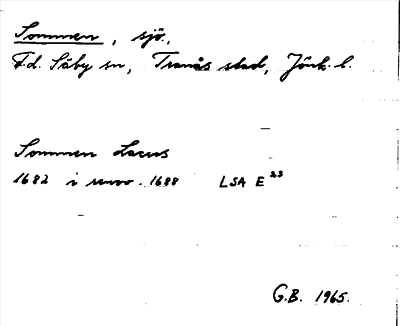 Sommen, sjö,
F.d. Säby sn, Tranås stad, Jönk. l.
Sommen Lacus
1682 i renov. 1688 LSA E 23
G.B. 1965.